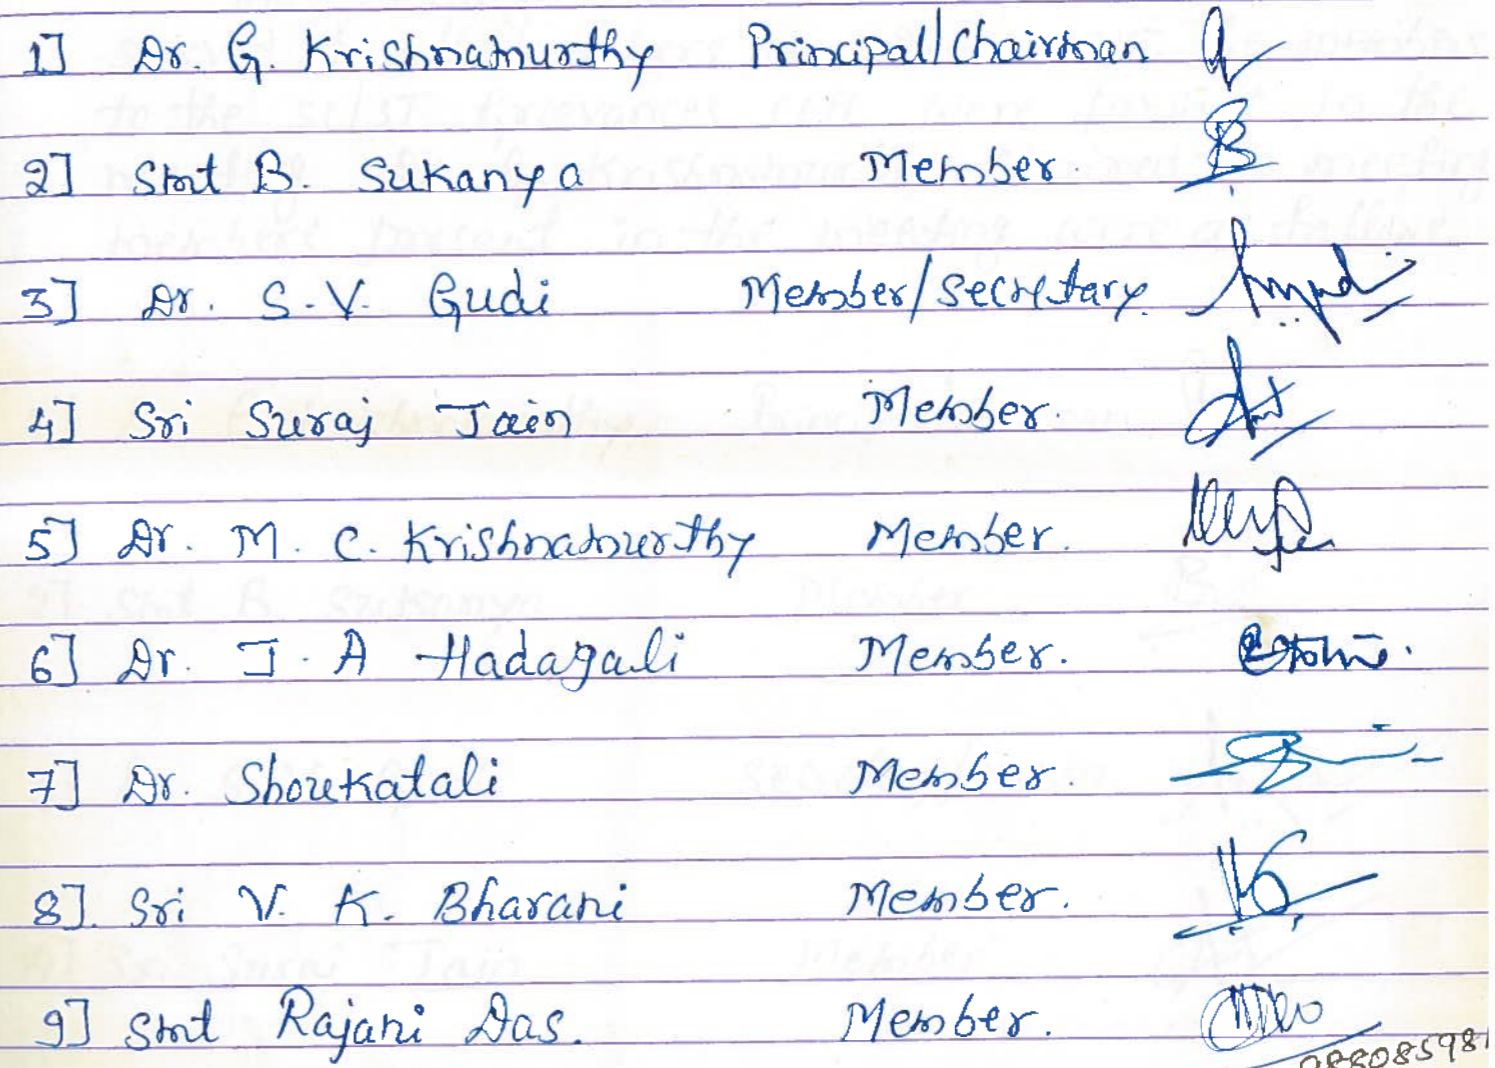 1] Dr. G. Krishnamurthy Principal/Chairman
2] Smt B. Sukanya Member.
3] Dr. S.V. Gudi Member/Secretary.
4] Sri Suraj Jain Member.
5] Dr. M. C. Krishnamurthy Member.
6] Dr. J. A Hadagali Member.
7] Dr. Shoukatali Member.
8]. Sri V. K. Bharani Member.
9] Smt Rajani Das. Member.